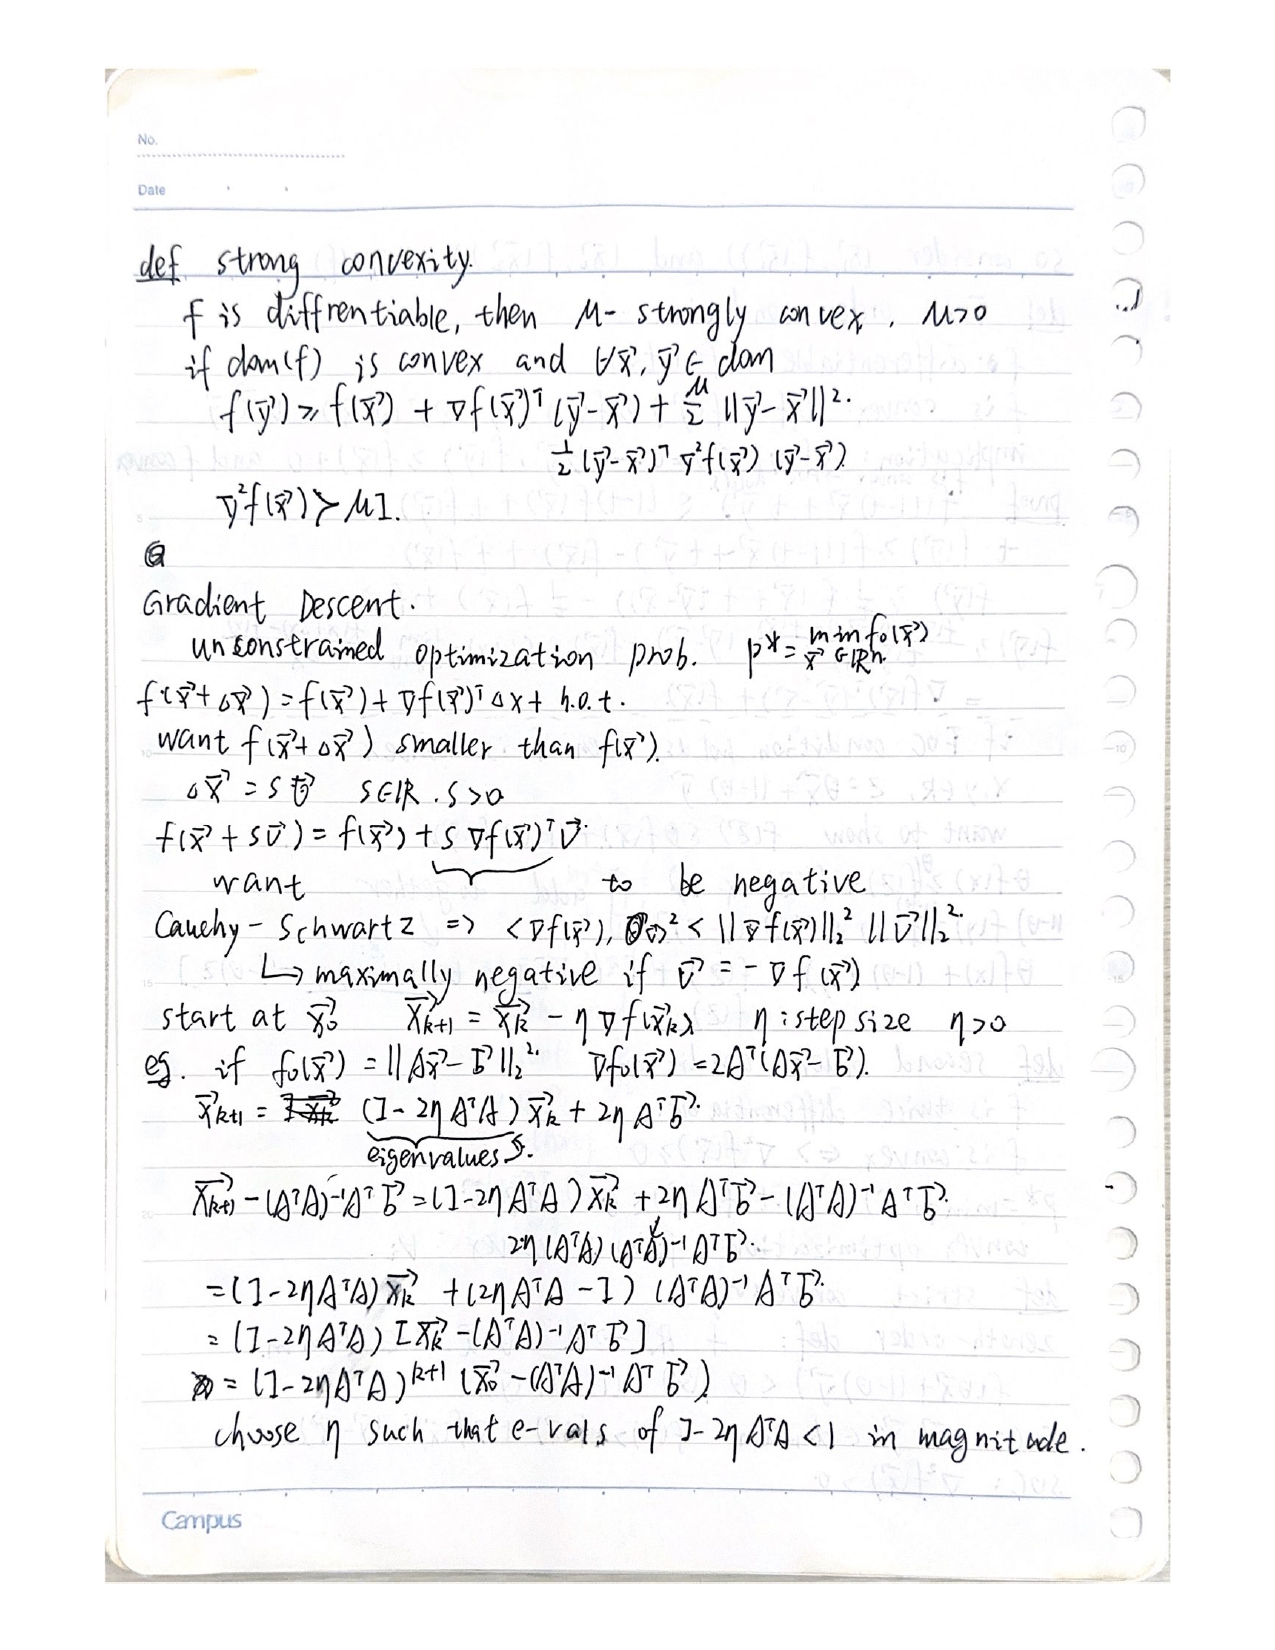 No.
Date
def strong convexity.
f is diffrentiable, then μ- strongly convex. μ>0
if dom(f) is convex and ∀x⃗, y⃗ ∈ dom
f(y⃗) ≥ f(x⃗) + ∇f(x⃗)ᵀ (y⃗-x⃗) + μ/2 ||y⃗-x⃗||².
1/2 (y⃗-x⃗)ᵀ ∇²f(x⃗) (y⃗-x⃗)
∇²f(x⃗) ≻ μI.
Gradient Descent.
unconstrained optimization prob. p* = min f₀(x⃗) x⃗ ∈ ℝⁿ
f(x⃗+Δx⃗) = f(x⃗) + ∇f(x⃗)ᵀ Δx + h.o.t.
want f(x⃗+Δx⃗) smaller than f(x⃗).
Δx⃗ = s v⃗ s∈ℝ. s>0
f(x⃗+sv⃗) = f(x⃗) + s ∇f(x⃗)ᵀ v⃗.
want to be negative
Cauchy-Schwartz => <∇f(x⃗), v⃗>² < ||∇f(x⃗)||₂² ||v⃗||₂².
↳ maximally negative if v⃗ = -∇f(x⃗)
start at x⃗₀ x⃗ₖ₊₁ = x⃗ₖ - η∇f(x⃗ₖ) η: step size η>0
eg. if f₀(x⃗) = ||Ax⃗-b⃗||₂². ∇f₀(x⃗) = 2Aᵀ(Ax⃗-b⃗).
x⃗ₖ₊₁ = (I-2ηAᵀA) x⃗ₖ + 2ηAᵀb⃗.
eigenvalues.
x⃗ₖ₊₁ - (AᵀA)⁻¹Aᵀb⃗ = (I-2ηAᵀA) x⃗ₖ + 2ηAᵀb⃗ - (AᵀA)⁻¹Aᵀb⃗.
2η(AᵀA)(AᵀA)⁻¹Aᵀb⃗.
= (I-2ηAᵀA) x⃗ₖ + (2ηAᵀA - I) (AᵀA)⁻¹Aᵀb⃗.
= (I-2ηAᵀA) [x⃗ₖ - (AᵀA)⁻¹Aᵀb⃗]
= (I-2ηAᵀA)ᵏ⁺¹ (x⃗₀ - (AᵀA)⁻¹Aᵀb⃗)
choose η such that e-vals of I-2ηAᵀA <1 in magnitude.
Campus